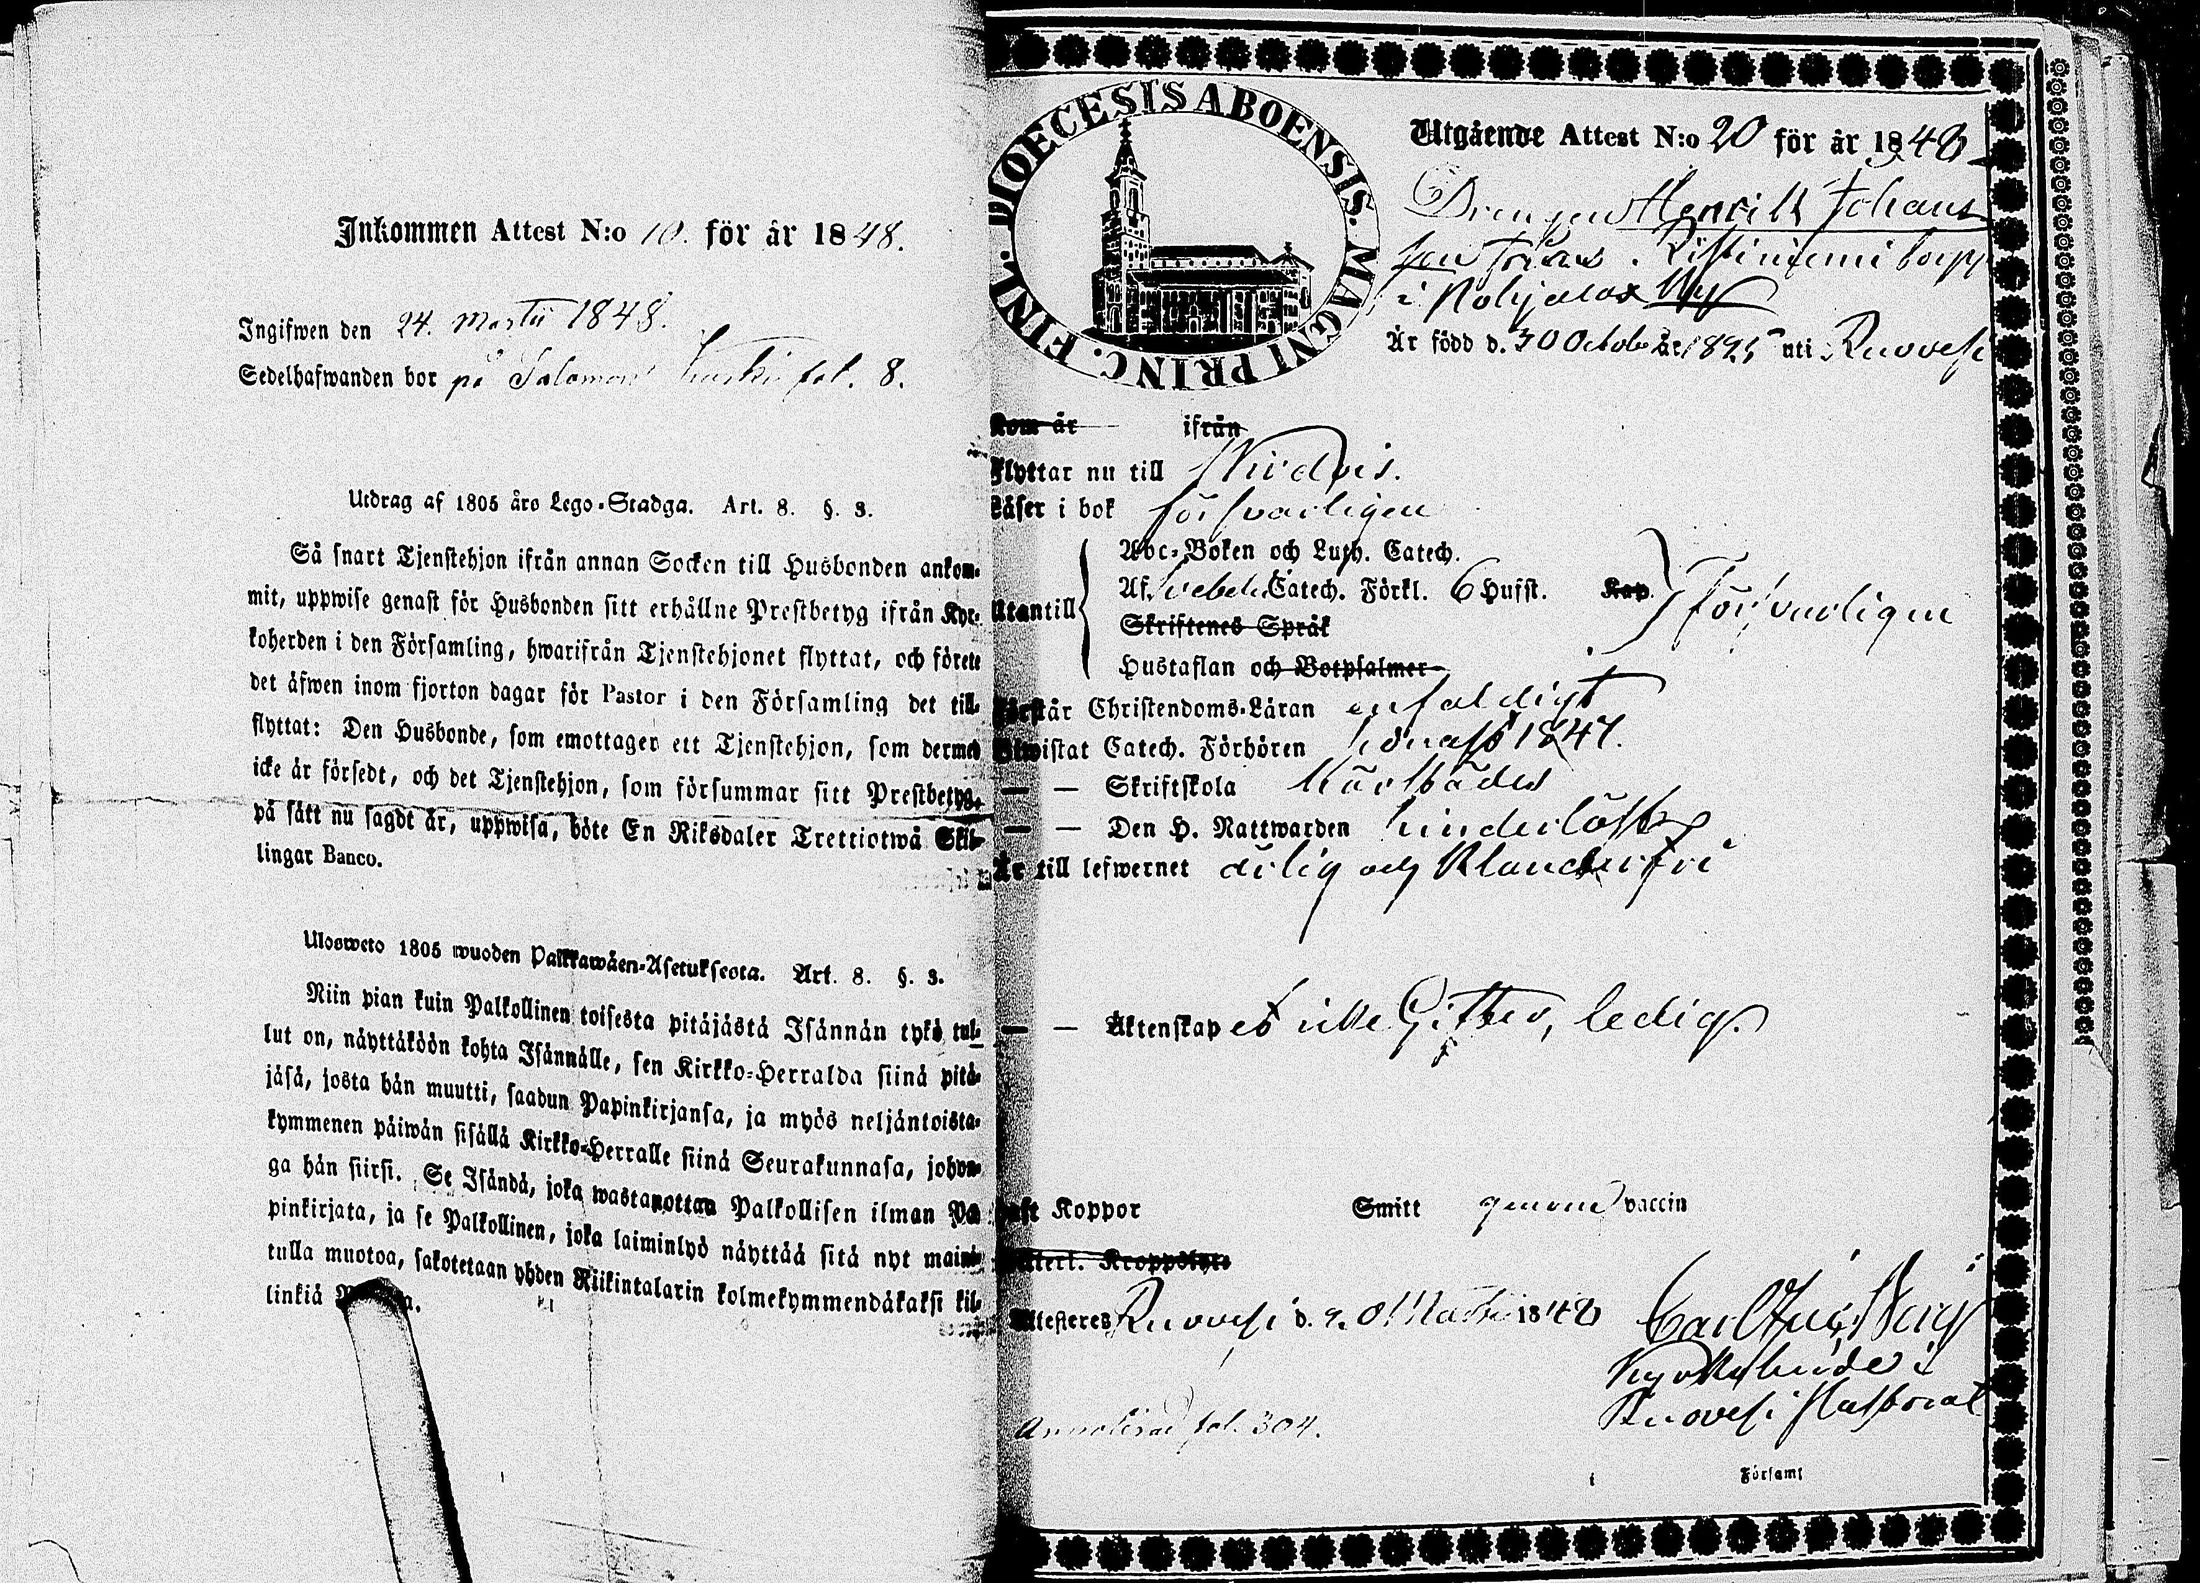 Inkommen Attest N:o 10. för år 1848.
Ingifwen den 24. Martii 1848.
Sedelhafwanden bor på Salomon fol. 8.
Utdrag af 1805 års Lego-Stadga. Art. 8. §. 3.
Så snart Tjenstehjon ifrån annan Socken till Husbonden ankom-
mit, uppwise genast för Husbonden sitt erhållne Prestbetyg ifrån Kyr-
koherden i den Församling, hwarifrån Tjenstehjonet flyttat, och förete
det äfwen inom fjorton dagar för Pastor i den Församling det till-
flyttat: Den Husbonde, som emottager ett Tjenstehjon, som dermed
icke är försedt, och det Tjenstehjon, som försummar sitt Prestbetyg,
på sätt nu sagdt är, uppwisa, böte En Riksdaler Trettiotwå Skil-
lingar Banco.
Ulosweto 1805 wuoden Palkkawäen-Asetuksesta. Art. 8. §. 3.
Niin pian kuin Palkollinen toisesta pitäjästä Isännän tykö tul-
lut on, näyttäköön kohta Isännälle, sen Kirkko-Herralda siinä pitä-
jäsä, josta hän muutti, saadun Papinkirjansa, ja myös neljäntoista-
kymmenen päiwän sisällä Kirkko-Herralle siinä Seurakunnasa, johon-
ga hän siirsi. Se Isändä, joka wastanottaa Palkollisen ilman Pa-
pinkirjata, ja se Palkollinen, joka laiminlyö näyttää sitä nyt maini-
tulla muotoa, sakotetaan yhden Riikintalarin kolmekymmendäkaksi kil-
linkiä
DIOECESIS ABOENSIS. MAGNI PRINC. FINL.
Utgående Attest N:o 20 för år 1848
Drengen Henrik Johans
son Ristiniemi torpp
i Pohjalax By
Är född d. 30 Octobr år 1825 uti Ruovesi
Kom år ifrån
Flyttar nu till Wirdois.
Läser i bok försvarligen
Abc-Boken och Luth. Catech.
Utantill Af Svebelii Catech. Förkl. 6 Hufst. Kap. Försvarligen
Skriftenes Språk
Hustaflan och Botpsalmer
Förstår Christendoms-Läran enfaldigt
Biwistat Catech. Förhören 1847.
— — Skriftskola
— — Den H. Nattwarden
Är till lefwernet ärlig och Klanderfri
— — Äktenskap ej ikke Gifter, ledig.
Haft Koppor Smitt genom vaccin
Attesteres Ruovesi d. 20 Martii 1848
Kyrkoherde i
Ruovesi Pastorat
Annoterad fol. 304.
Församl